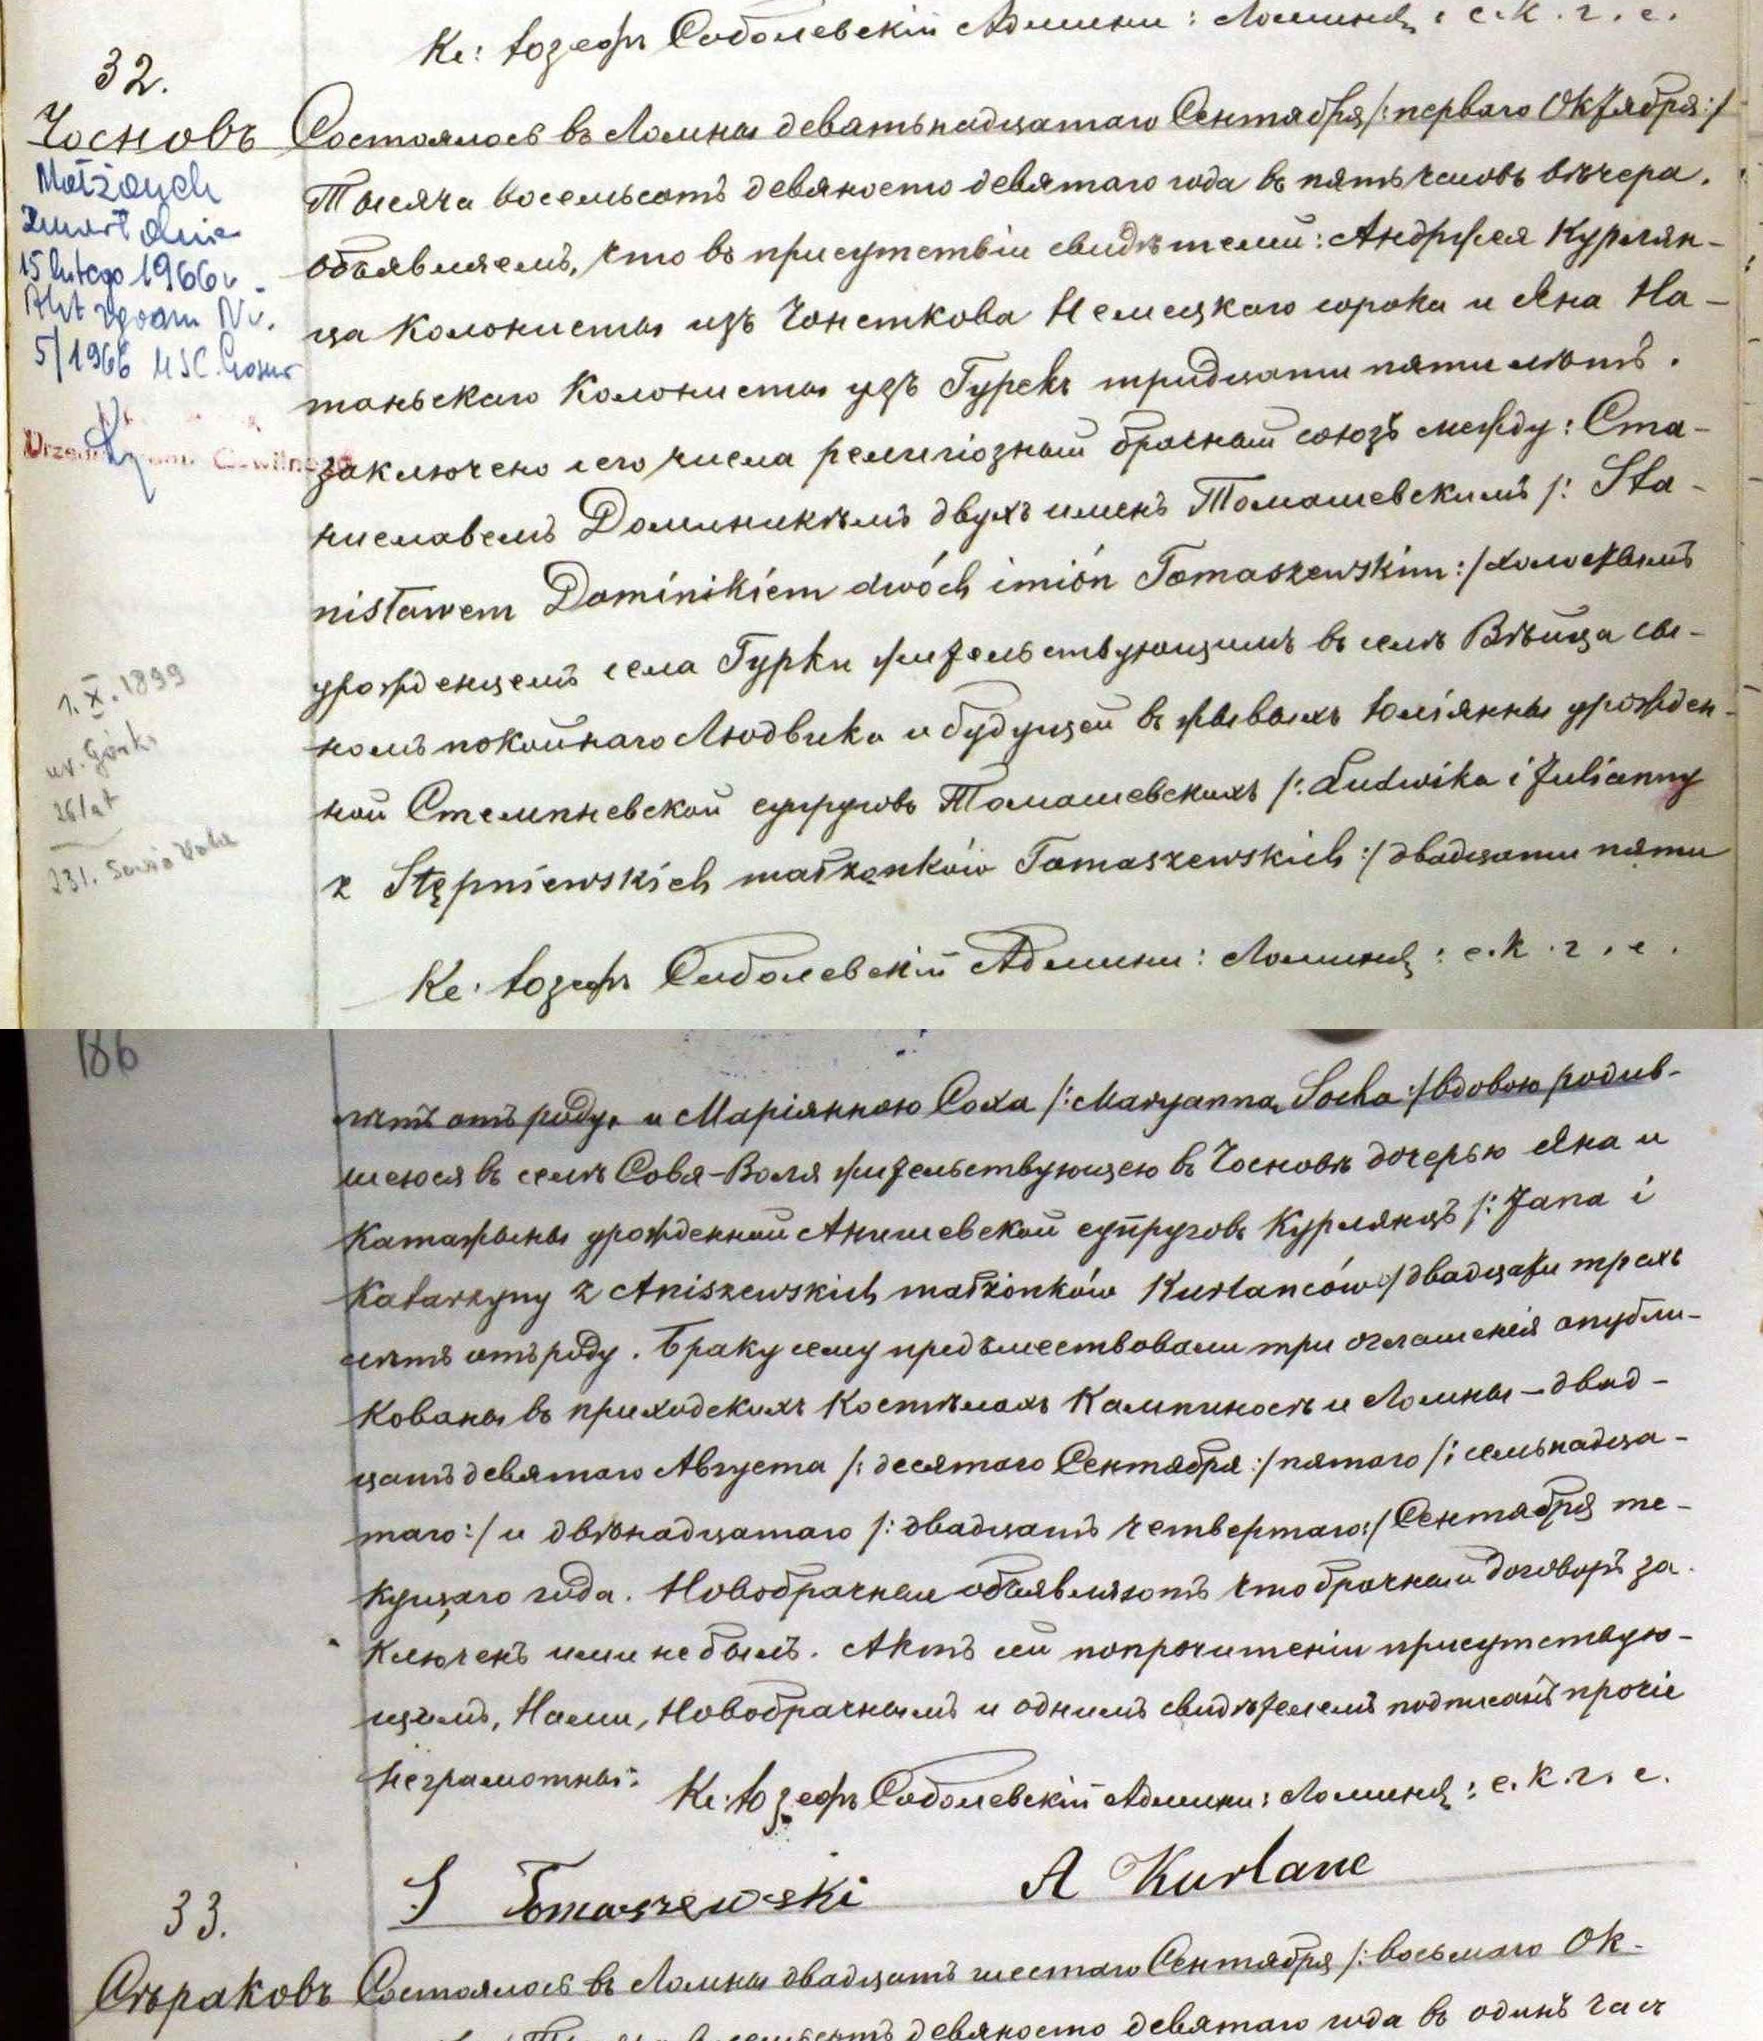 Кс: Іозефъ Соболевскій Админи: Ломина, : с. к. г. с.
32.
Чосновъ
Małżonek
zmarł dnia
15 lutego 1966 r.
Akt zgonu Nr.
5/1966 USC
1. X. 1899
ur. Górki
26 lat
231. Sowia Wola
Состоялось въ Ломны девятьнадцатаго Сентября /: перваго Октября :/
Тысяча восемьсотъ девяносто девятаго года въ пять часовъ вечера.
Объявляемъ, что въ присутствіи свидѣтелей: Андржея Курлян-
ца Колонисты изъ Чонсткова Немецкаго сорока и Яна На-
таньскаго Колонисты изъ Гурекъ тридцати пяти лѣтъ.
заключено сего числа религіозный брачный союзъ между: Ста-
ниславемъ Доминикѣмъ двухъ именъ Томашевскимъ /: Sta-
nisławem Dominikiem dwóch imión Tomaszewskim :/ холостымъ
урожденцемъ села Гурки жительствующимъ въ селѣ Вѣйца сы-
номъ покойнаго Людвика и будущей въ живыхъ Юліянны урожден-
ной Стемпневской супруговъ Томашевскихъ /: Ludwika i Julianny
z Stępniewskich małżonków Tomaszewskich :/ двадцати пяти
Кс: Іозефъ Соболевскій Админи: Ломина, : с. к. г. с.
186
лѣтъ отъ роду, и Маріянною Соха /: Maryanną Socha :/ вдовою родив-
шеюся въ селѣ Совя-Воля жительствующею въ Чосновѣ дочерью Яна и
Катаржыны урожденной Анишевской супруговъ Курлянцъ /: Jana i
Katarzyny z Aniszewskich małżonków Kurlanców :/ двадцати трехъ
лѣтъ отъ роду. Браку сему предъшествовали три оглашенія опубли-
кованы въ приходскихъ костѣлахъ Кампиносъ и Ломны – двад-
цать девятаго Августа /: десятаго Сентября :/ пятаго /: семьнадца-
таго :/ и двѣнадцатаго /: двадцать четвертаго :/ Сентября те-
кущаго года. Новобрачныи объявляютъ что брачный договоръ за-
ключенъ ими не былъ. Актъ сей по прочитеніи присутствую-
щимъ, Нами, Новобрачнымъ и однимъ свидѣтелемъ подписанъ прочіе
неграмотны:
Кс: Іозефъ Соболевскій Админи: Ломина, : с. к. г. с.
S Tomaszewski A Kurlanc
33.
Сѣраковъ
Состоялось въ Ломны двадцать шестаго Сентября /: восьмаго Ок-
девяносто девятаго года въ одинъ час